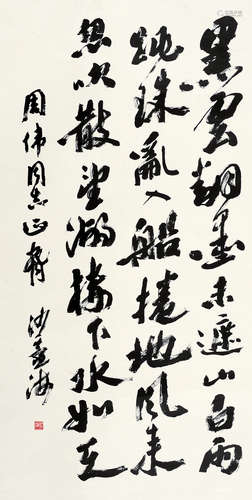 黑雲翻墨未遮山白雨
跳珠亂入船捲地風来
忽吹散望湖樓下水如天
周伟同志正 沙孟海